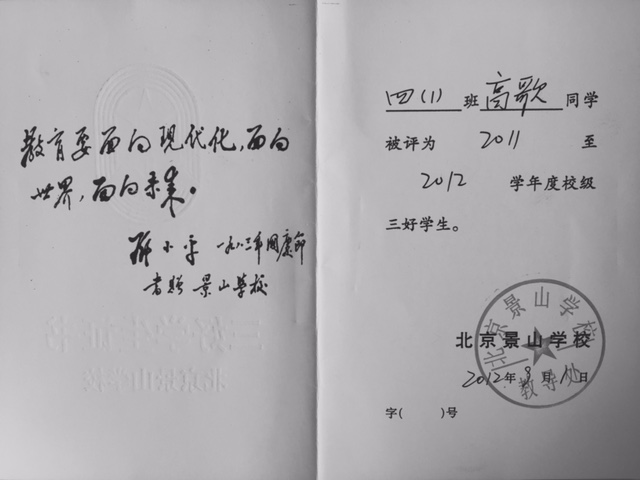 教育要面向现代化,面向
世界,面向未来。
邓小平 一九八三年国庆节
书赠 景山学校
四(1)班高歌同学
被评为 2011 至
2012 学年度校级
三好学生。
北京景山学校
2012年9月1日
字( )号
北京景山学校
教导处
三好学生证书
北京景山学校